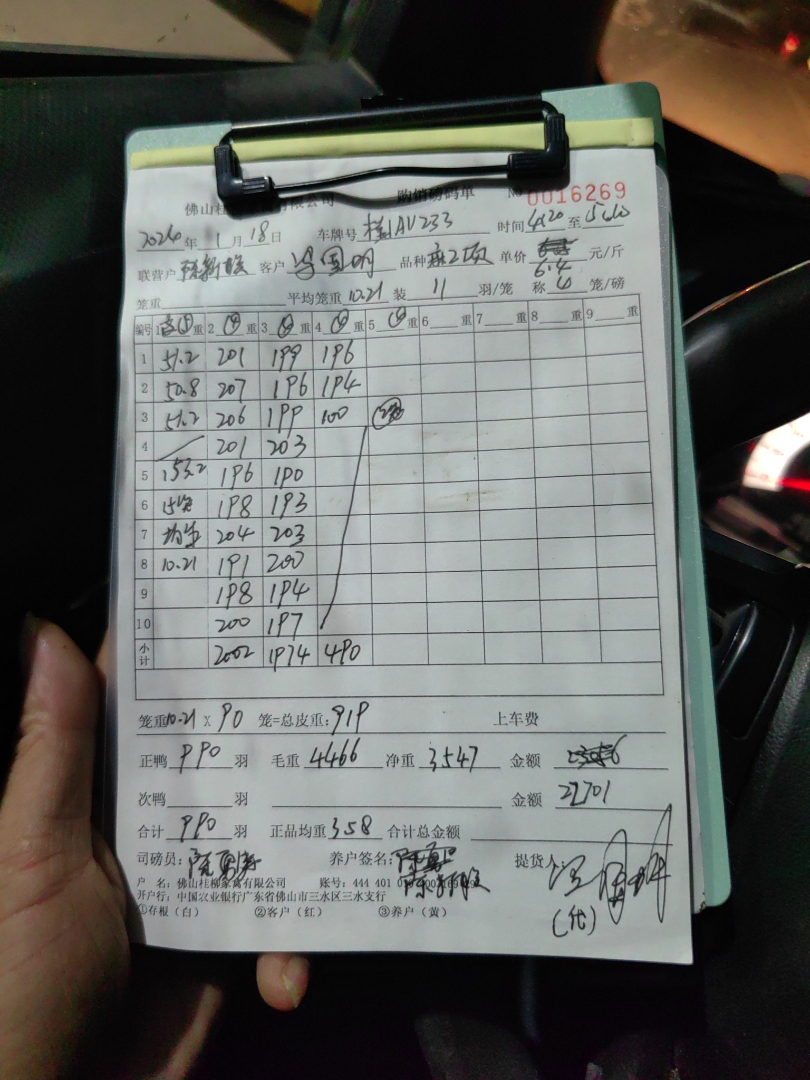 佛山桂 有限公司 购销磅码单 No 0016269
2024年 1月 18日 车牌号 桂AV233 时间 4:20 至 5:10
联营户 客户 品种 单价 6.4 元/斤
笼重 平均笼重 10.21 装 11 羽/笼 称 4 笼/磅
编号 重 2 重 3 重 4 重 5 重 6 重 7 重 8 重 9 重
1 51.2 201 199 196
2 50.8 207 196 194
3 51.2 206 199 100
4 201 203
5 153.2 196 190
6 15只 198 193
7 204 203
8 10.21 191 200
9 198 194
10 200 197
小计 2002 1974 490
笼重 10.21 X 90 笼=总皮重: 919 上车费
正鸭 990 羽 毛重 4466 净重 3547 金额
次鸭 羽 金额 22701
合计 990 羽 正品均重 3.58 合计总金额
司磅员: 养户签名: 提货人:
(代)
户 名: 佛山桂柳家禽有限公司 账号: 444 401
开户行: 中国农业银行广东省佛山市三水区三水支行
①存根(白) ②客户(红) ③养户(黄)